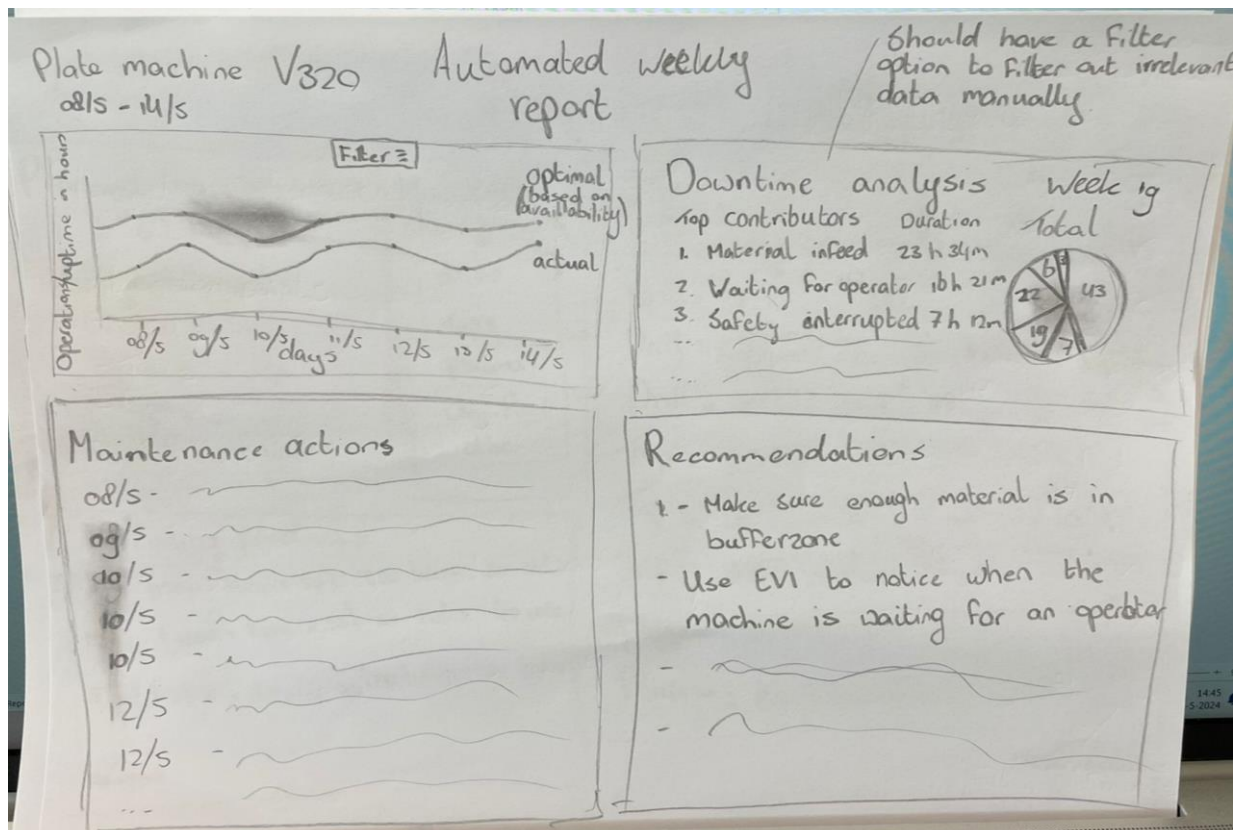 Plate machine V320
08/5 - 14/5
Automated weekly
report
Should have a filter
option to filter out irrelevant
data manually
Operation/uptime in hours
Filter
optimal
(based on
availability)
actual
08/5 09/5 10/5 11/5 12/5 13/5 14/5
days
Downtime analysis Week 19
Top contributors Duration Total
1. Material infeed 23h 34m
2. Waiting for operator 16h 21m
3. Safety interrupted 7h 12m
...
....
6
43
22
19
7
Maintenance actions
08/5 -
09/5 -
10/5 -
10/5 -
10/5 -
12/5 -
12/5 -
...
Recommendations
- Make sure enough material is in
bufferzone
- Use EVI to notice when the
machine is waiting for an operator
-
-
14:45
-5-2024